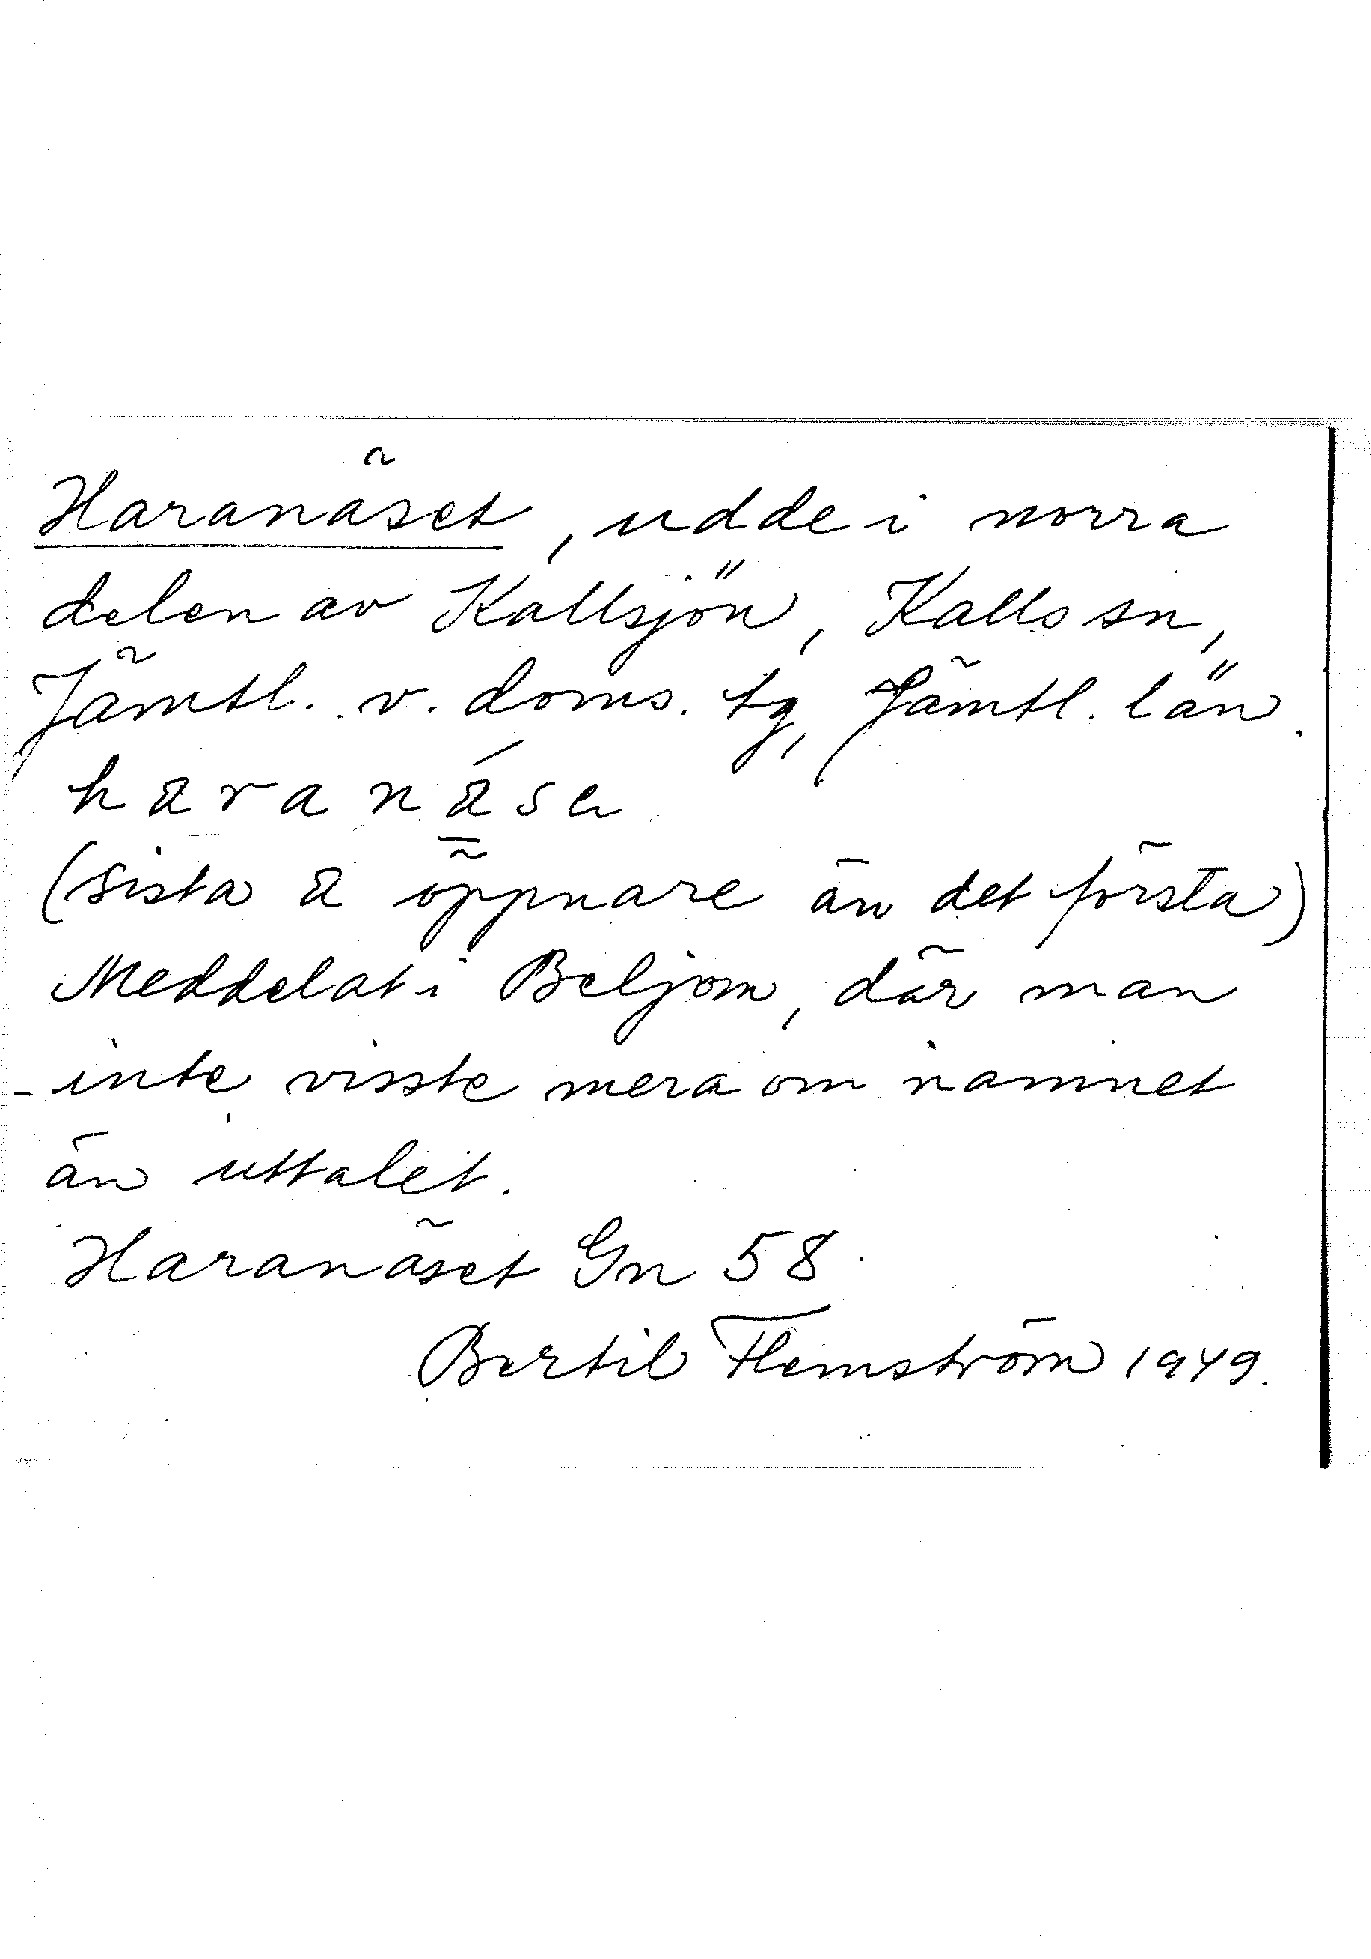 Haranäset, udde i norra
delen av Kallsjön, Kalls sn,
Jämtl. v. doms. tg, Jämtl. län.
haranása
(sista a öppnare än det första)
Meddelat i Beljom, där man
inte visste mera om namnet
än uttalet.
Haranäset Gn 58
Bertil Flemström 1949.